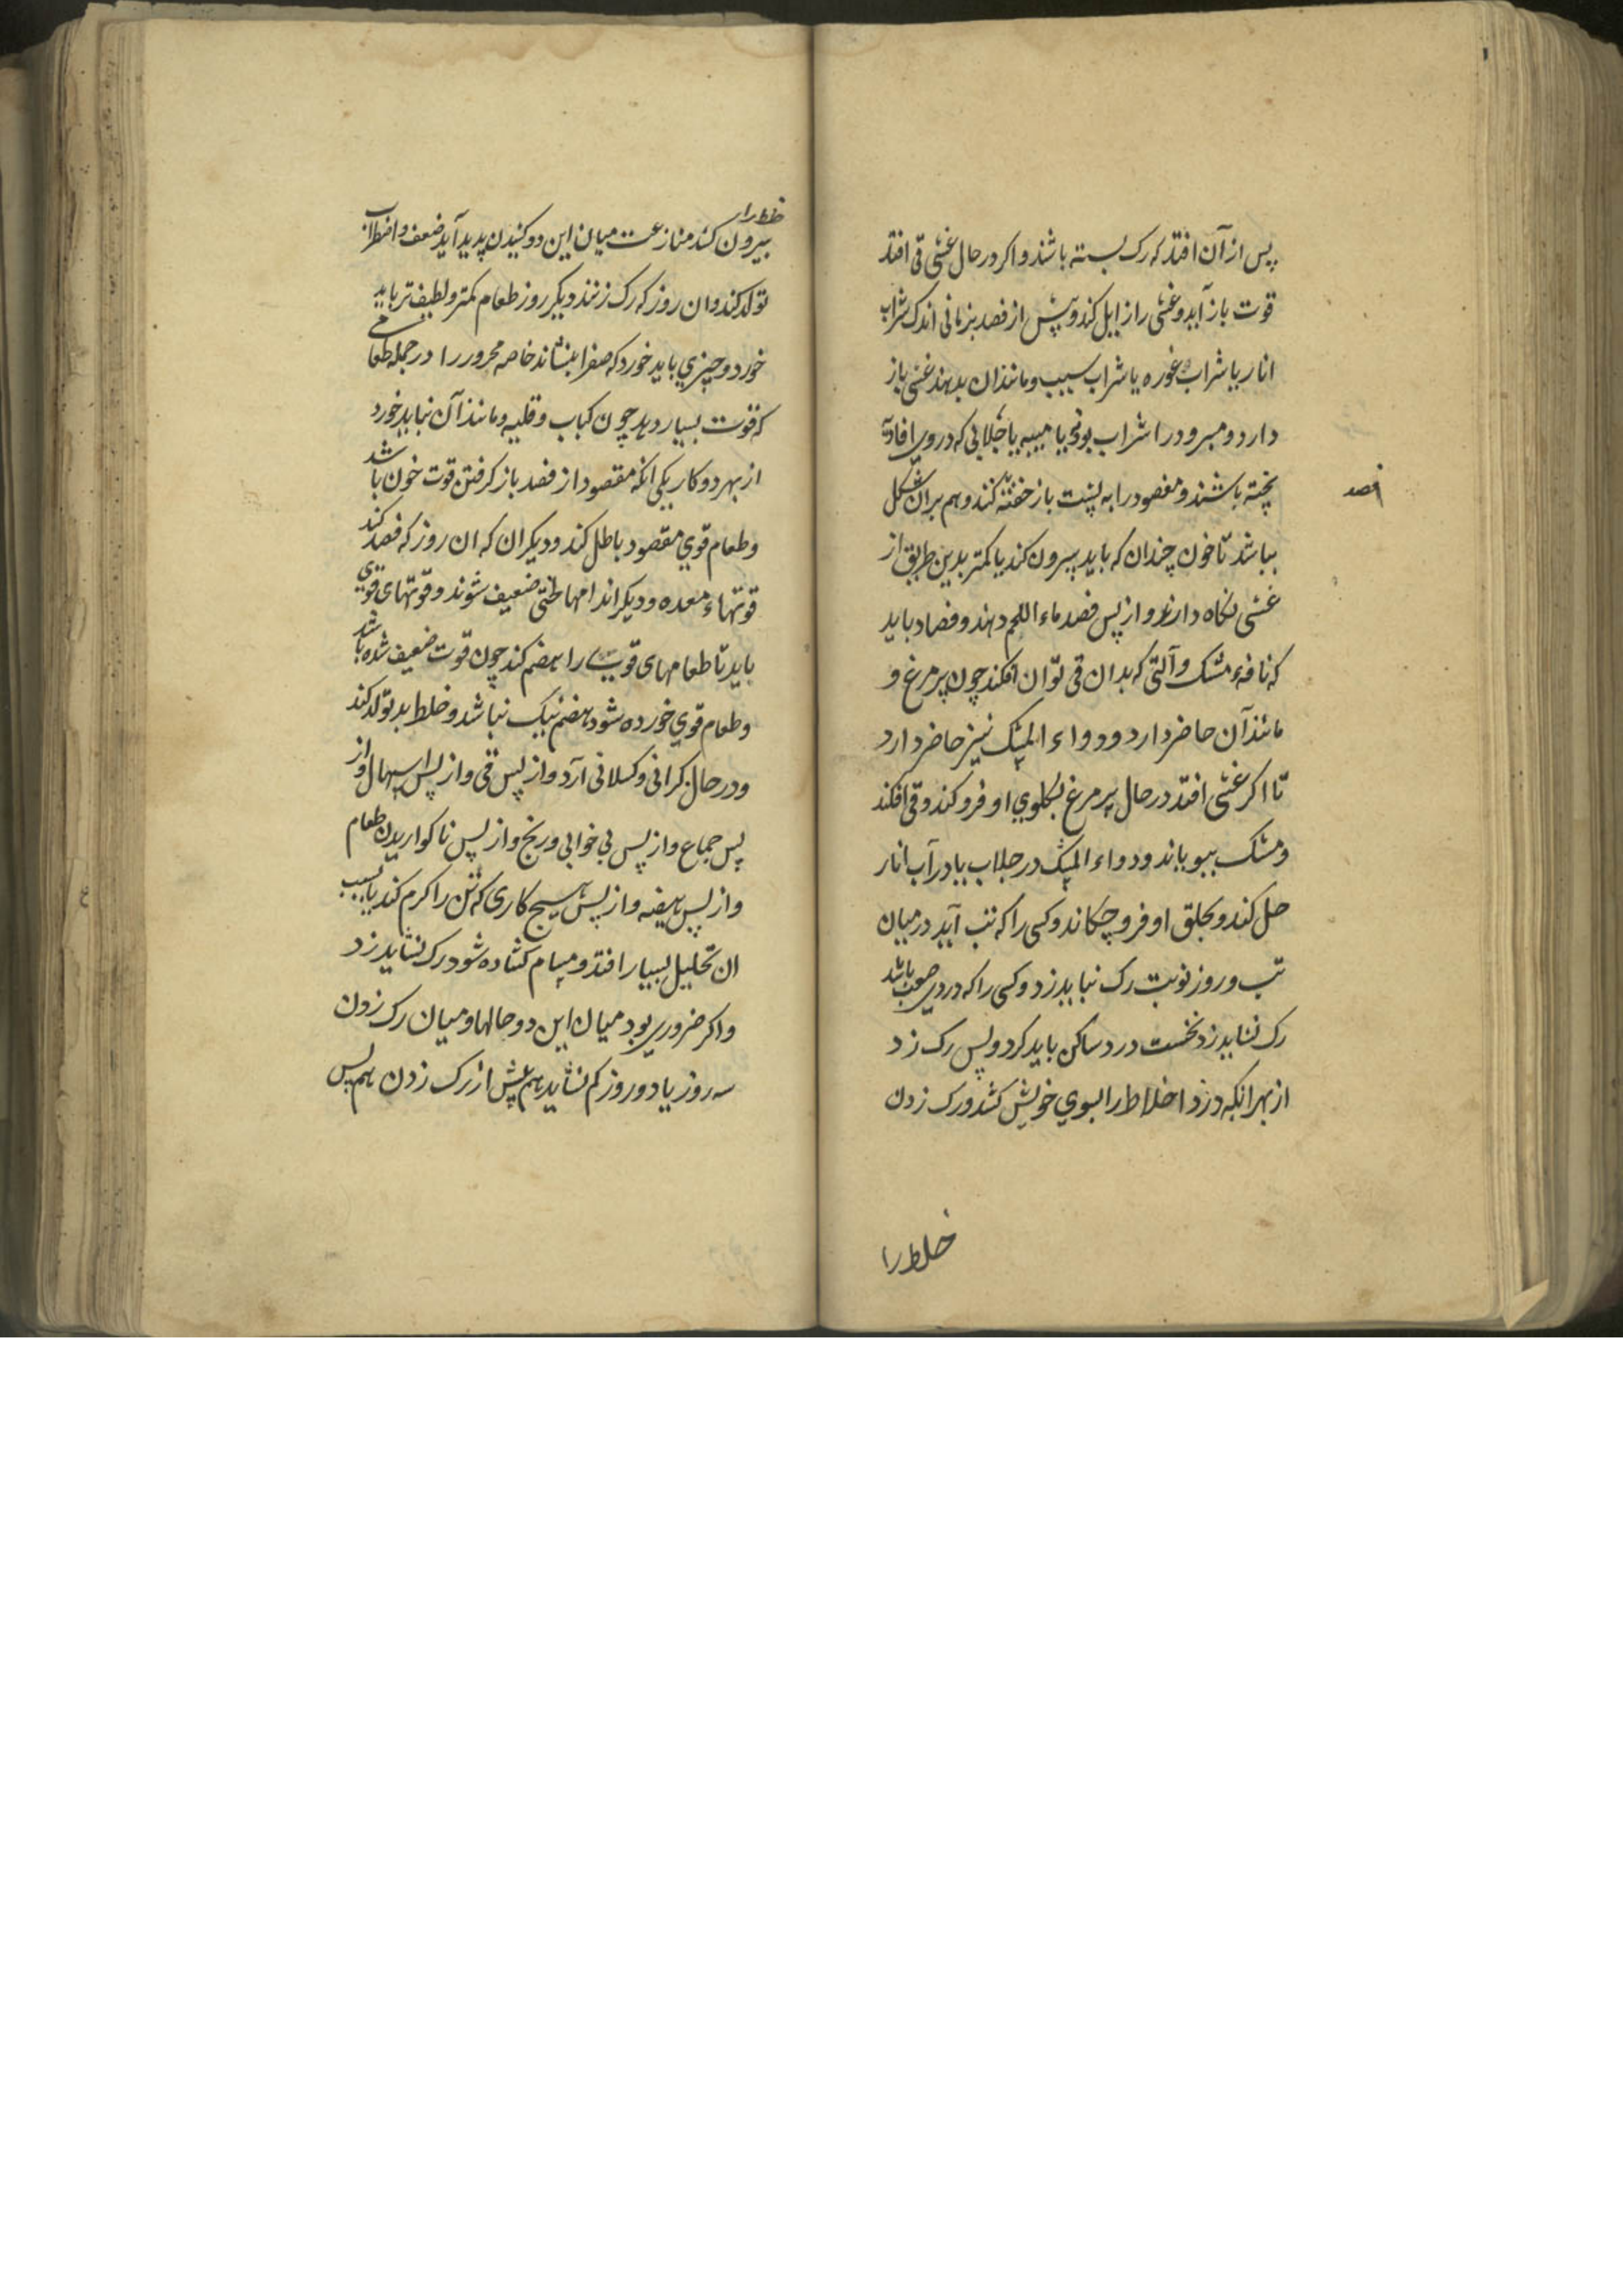 پس از آن افتد که رک بسته باشند و اکر در حال غشی قی افتد
قوت باز آید و غشی را زایل کند و پیش از فصد بزمانی اندک شراب
انار یا شراب غوره یا شراب سیب و مانند ان بدهند غشی باز
دارد و مبرود را شراب بوی یا میبه یا جلابی که در وی افاویه
پخته باشند و مفصود را به پشت باز خفته کنند و هم بران شکل
فصد
بباشد تا خون چندان که باید بیرون کند یا کمتر بدین طریق از
غشی نکاه دارد و از پس فصد ماء اللحم دهند و فصاد باید
که نافهء مشک و آلتی که بدان قی توان افکند چون پر مرغ و
مانند آن حاضر دارد و دواء المشک نیز حاضر دارد
تا اکر غشی افتد در حال پر مرغ بکلوی او فرو کند و قی افکند
و مشک ببویاند و دواء المشک در جلاب یا در آب انار
حل کند و بحلق او فرو چکاند و کسی را که تب آید در میان
تب و روز نوبت رک نباید زد و کسی را که دردی صعب باشد
رک نشاید زد نخست درد ساکن باید کرد و پس رک زد
از بهر انکه درد اخلاط را بسوی خویش کشد و رک زدن
خلط را
خلط را
بیرون کشد منازعت میان این دو کشیدن پدید آید ضعف و اضطراب
تولد کند و ان روز که رک زنند دیکر روز طعام کمتر و لطیف تر باید
خورد و چیزی باید خورد که صفرا بنشاند خاصه محرور را در جمله طعامی
که قوت بسیار دهد چون کباب و قلیه و مانند آن نباید خورد
از بهر دو کار یکی انکه مقصود از فصد باز کرفتن قوت خون باشد
و طعام قوی مقصود باطل کند و دیکر ان که ان روز که فصد کند
قوتهاء معده و دیکر اندامها لختی ضعیف شوند و قوتهای قوی
باید تا طعامهای قوی را هضم کند چون قوت ضعیف شده باشد
و طعام قوی خورده شود هضم نیک نباشد و خلط بد تولد کند
و در حال کرانی و کسلانی آرد و از پس قی و از پس اسهال و از
پس جماع و از پس بی خوابی و رنج و از پس ناکواریدن طعام
و از پس هیضه و از پس هیچ کاری که تن را کرم کند یا بسبب
ان تحلیل بسیار افتد و مسام کشاده شود رک نشاید زد
و اکر ضروری بود میان این دو حالها و میان رک زدن
سه روز یا دو روز کم نشاید هم پیش از رک زدن هم پس